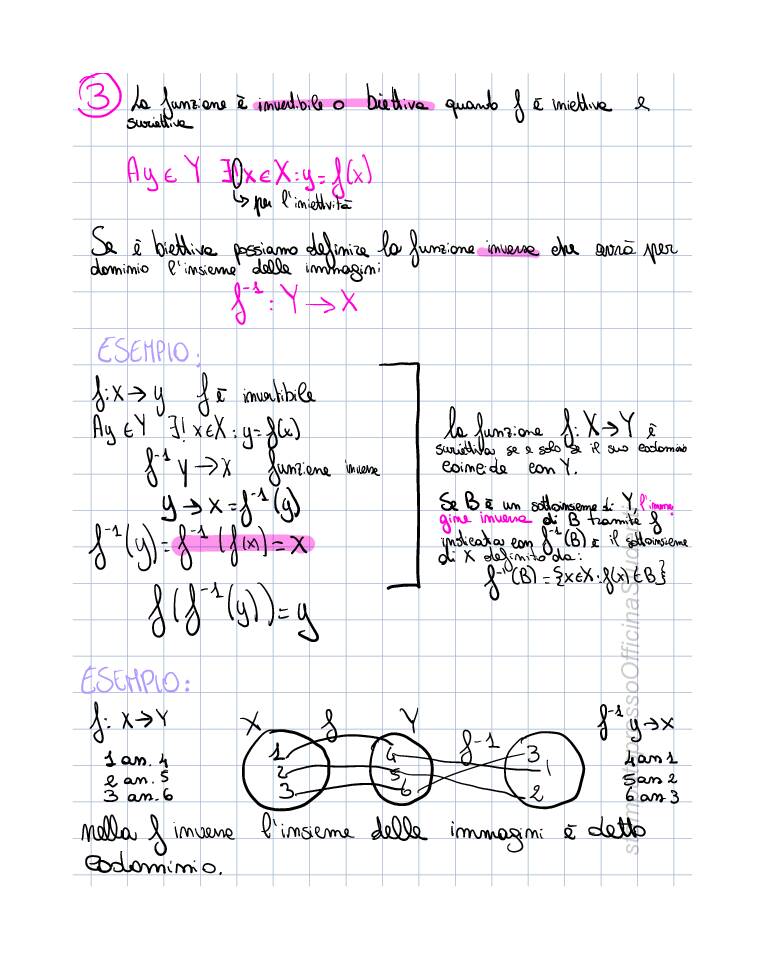 3 La funzione è invertibile o biettiva quando f è iniettiva e
suriettiva
∀y ∈ Y ∃! x ∈ X : y = f(x)
↳ per l'iniettività
Se è biettiva possiamo definire la funzione inversa che avrà per
dominio l'insieme delle immagini
f⁻¹ : Y → X
ESEMPIO:
f: X → y f è invertibile
∀y ∈ Y ∃! x ∈ X : y = f(x)
f⁻¹ y → X funzione inversa
y → x = f⁻¹(y)
f⁻¹(y) = f⁻¹(f(x)) = x
f(f⁻¹(y)) = y
la funzione f: X → Y è
suriettiva se e solo se il suo codominio
coincide con Y.
Se B è un sottoinsieme di Y, l'imma
gine inversa di B tramite f
indicata con f⁻¹(B) è il sottoinsieme
di X definito da:
f⁻¹(B) = {x ∈ X : f(x) ∈ B}
ESEMPIO:
f: X → Y X f Y f⁻¹ f⁻¹ y → x
1 an. 4 1 4 3 4 an 1
2 an. 5 2 5 1 5 an 2
3 an. 6 3 6 2 6 an 3
nella f inversa l'insieme delle immagini è detto
codominio.